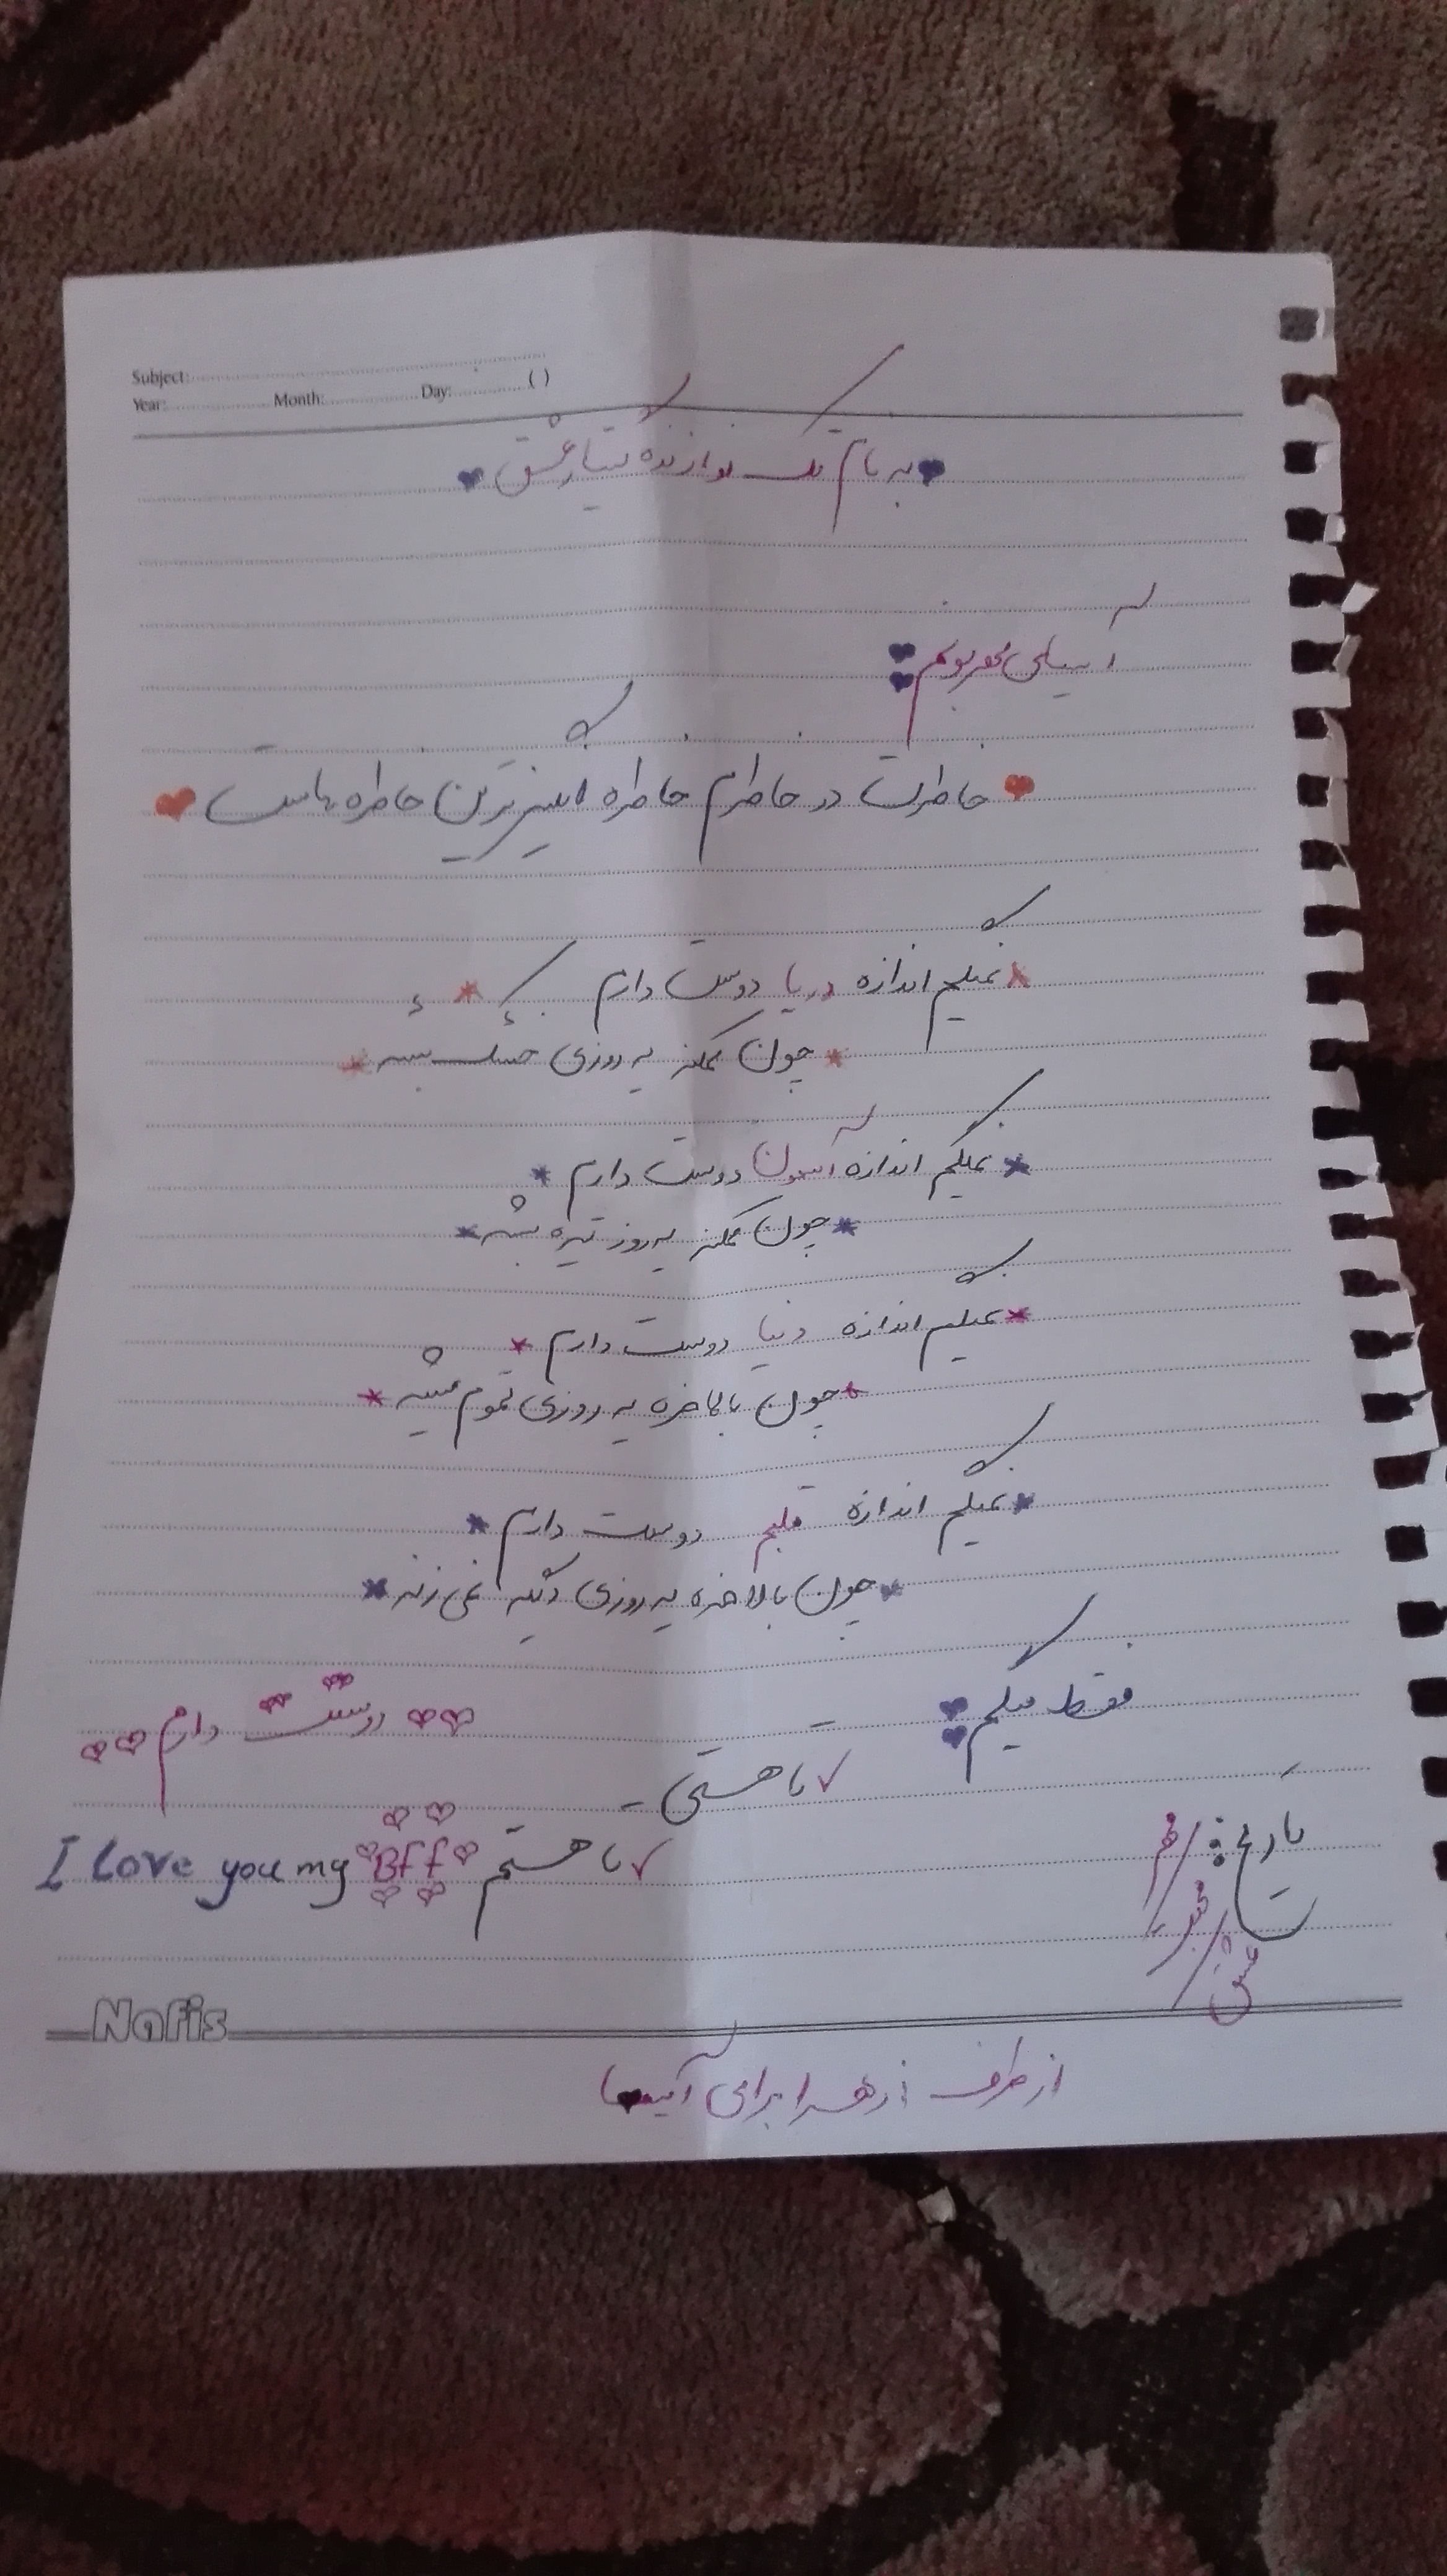 Subject:
Year: Month: Day: ( )
به نام تک نوازنده گیتار عشق
آجی مهربونم
خاطرت در خاطرم خاطره انگیزترین خاطره هاست
نمیگم اندازه دریا دوست دارم
چون ممکنه یه روزی خشک بشه
نمیگم اندازه آسمون دوست دارم
چون ممکنه یه روز تیره بشه
نمیگم اندازه دنیا دوست دارم
چون بالاخره یه روزی تموم میشه
نمیگم اندازه قلبم دوست دارم
چون بالاخره یه روزی دیگه نمی زنه
فقط میگم
تا هستی
دوست دارم
تا هستم
I Love you my Bff
تاریخ:
عشق
Nafis
از طرف زهرا برای